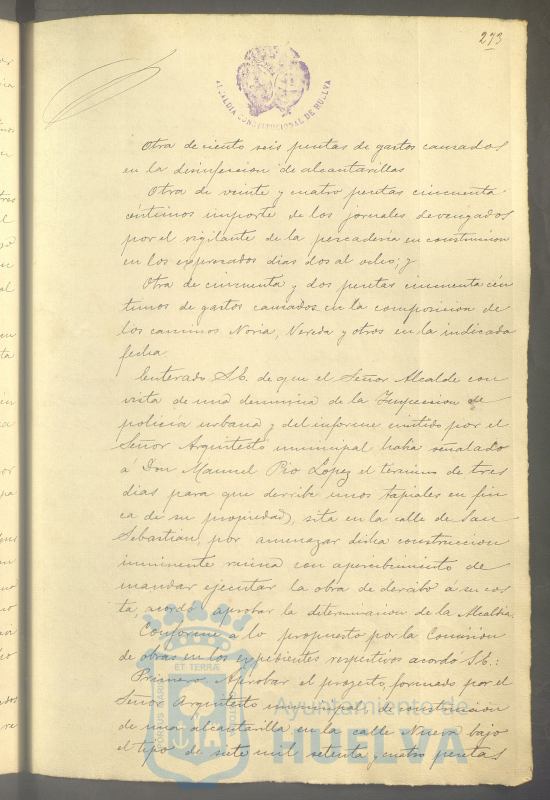 273
ALCALDIA CONSTITUCIONAL DE HUELVA
Otra de ciento seis pesetas de gastos causados
en la desinfeccion de alcantarillas
Otra de veinte y cuatro pesetas cincuenta
céntimos importe de los jornales devengados
por el vigilante de la pescadería en construccion
en los expresados dias dos al ocho; y
Otra de cincuenta y dos pesetas cincuenta cén
timos de gastos causados en la composicion de
los caminos Noria, Vereda y otros en la indicada
fecha.
Enterado S.E. de que el Señor Alcalde con
vista de una denuncia de la Inspeccion de
policia urbana y del informe emitido por el
Señor Arquitecto municipal habia señalado
á Don Manuel Pio Lopez el término de tres
dias para que derribe unos tapiales en fin
ca de su propiedad, sita en la calle de San
Sebastian, por amenazar dicha construccion
inminente ruina con apercibimiento de
mandar ejecutar la obra de derribo á su cos
ta, acordó aprobar la determinacion de la Alcaldia
Conforme á lo propuesto por la Comision
de obras en los expedientes respectivos acordó S.E.:
Primero. Aprobar el proyecto, formado por el
Señor Arquitecto municipal, de construccion
de una alcantarilla en la calle Nueva bajo
el tipo de siete mil setenta y cuatro pesetas
ET TERRA
Ayuntamiento de
HUELVA